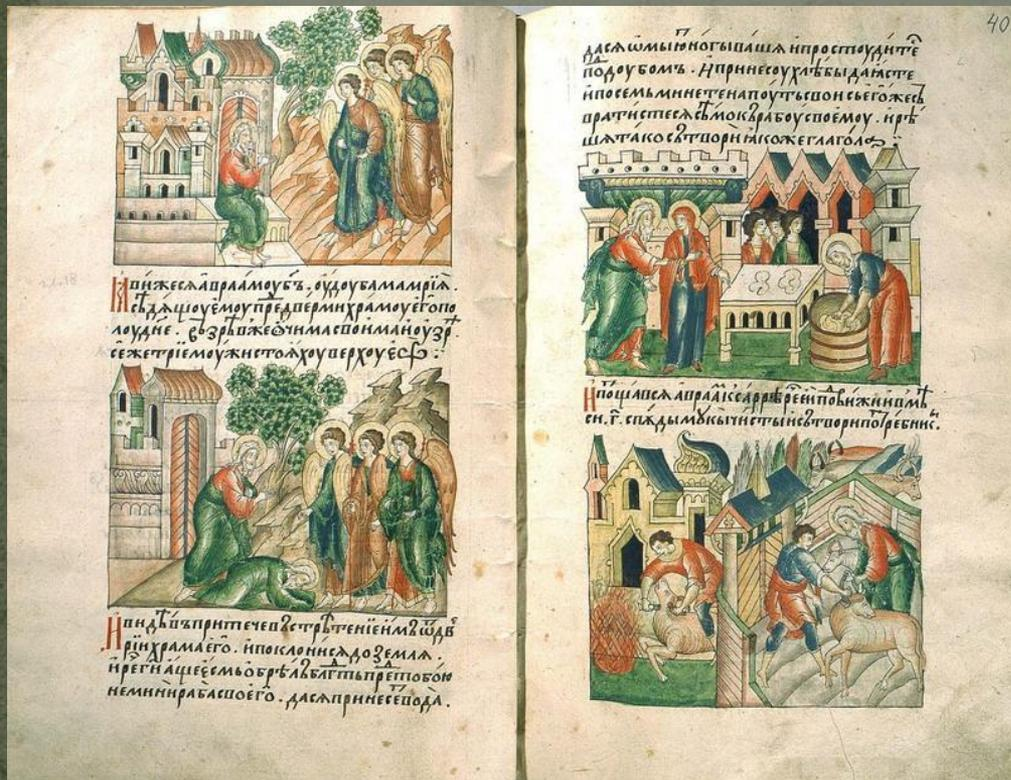 Яви же ся авраамоу бъ, оу доуба мамрїя.
сѣдящоу емоу пред дверми храмоу его по
лоудне. возрѣв же очима своима и оузрѣ
се же трїе моужи стояхоу верхоу его
И видѣвъ притече въ стрѣтенїе имъ ѿ дв
рїи храма его. и поклонися до земля.
и рече ги аще есмь обрѣлъ блгть пред тобою
не мини раба своего. да ся принесе вода.
40
да ся омыю ногы вашя и простоудите
под доубомъ. И принесоу хлѣбы да ясте
и по семь минете на поуть свои сь егоже сь
вратистеся сѣмо къ рабоу своемоу. и рѣ
шя тако сътвори якоже глагола
И потщався авраам к саррѣ рече ей
си. г. спѫды мукы чисты и сътвори потребник.